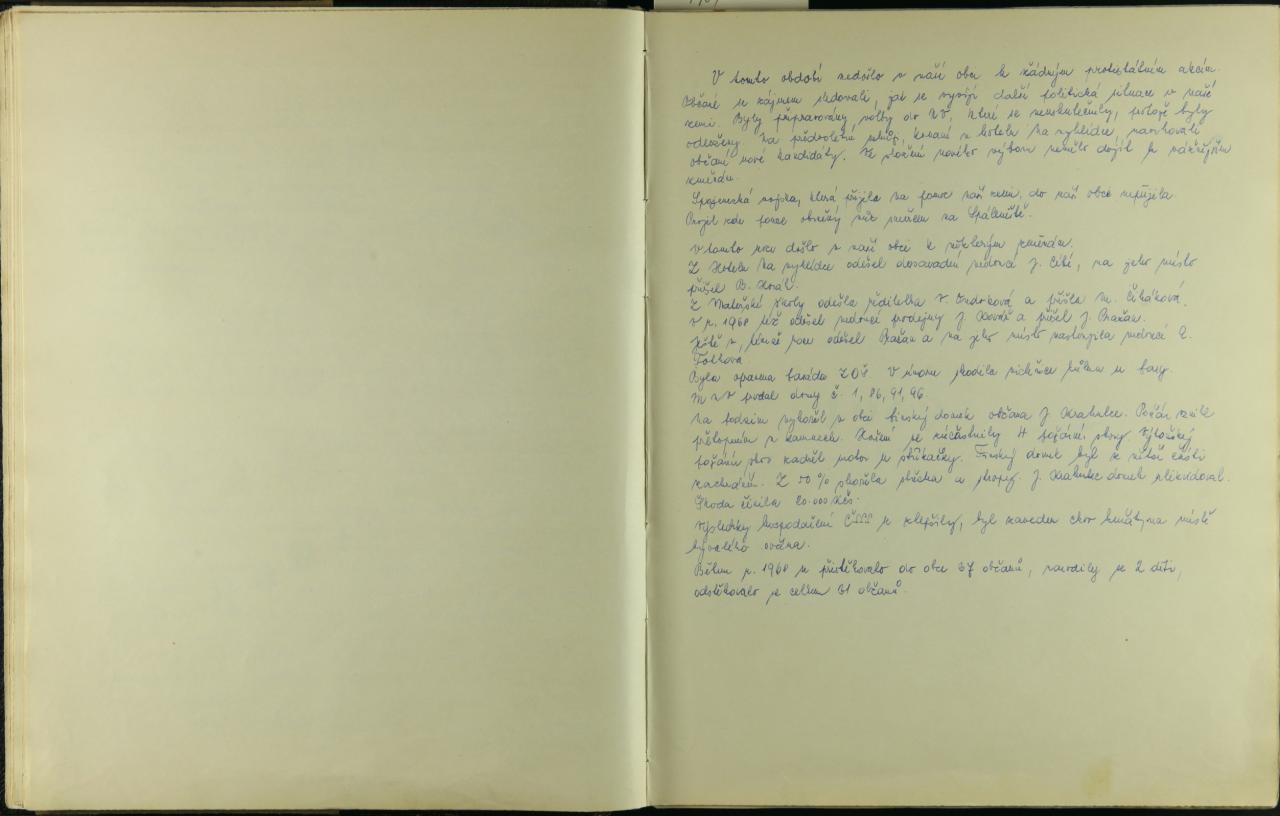 V tomto období nedošlo v naší obci k žádným protestátním akcím.
Občané se zájmem sledovali, jak se vyvíjí další politická situace v naší
zemi. Byly připravovány volby do NV, které se neuskutečnily, protože byly
odloženy. Na předvolební schůzi, konané v hotelu Na vyhlídce, navrhovali
občané nové kandidáty. Ve složení nového výboru nemělo dojít k vážnějším
změnám.
Spojenecká vojska, která přijela na pomoc naší zemi, do naší obce nepřijela.
Projel zde pouze obrněný vůz směrem na Spáleniště.
V tomto roce došlo v naší obci k některým změnám.
Z Hotelu Na vyhlídce odešel dosavadní vedoucí J. Cibí, na jeho místo
přišel B. Král.
Z Mateřské školy odešla ředitelka V. Indrková a přišla M. Čiháková.
V r. 1968 též odešel vedoucí prodejny J. Kovář a přišel J. Bražan.
Ještě v témže roce odešel Bražan a na jeho místo nastoupila vedoucí E.
Foltová.
Byla opravena fasáda ZDŠ. V únoru shodila vichřice kůlnu u fary.
MNV prodal domy č. 1, 86, 91, 96.
Na podzim vyhořel v obci finský domek občana J. Krahulce. Požár vznikl
přetopením v kamnech. Hašení se zúčastnily 4 požární sbory.
požární sbor zadřel motor u stříkačky. Finský domek byl z větší části
zachráněn. Z 50 % shořela střecha a stropy. J. Krahulec domek zlikvidoval.
Škoda činila 20.000 Kčs.
Výsledky hospodaření ČSSS se zlepšily, byl zaveden chov kuřat na místě
bývalého ovčína.
Během r. 1968 se přistěhovalo do obce 67 občanů, narodily se 2 děti,
odstěhovalo se celkem 61 občanů.